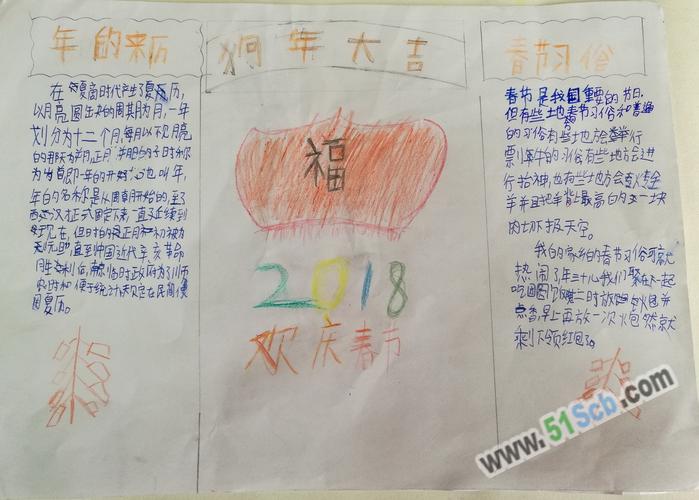 年的来历
在夏商时代产生了夏历,
以月亮圆缺的周期为月,一年
划分为十二个月,每月以不见月亮
的那天为朔,正月朔日的子时称
为岁首,即一年的开始,也叫年,
年的名称是从周朝开始的,至了
西汉才正式固定下来,一直延续到
了现在,但古时的正月初一被为
元旦,直到中国近代辛亥革命
胜利后,南京临时政府为了
和便于统计,规定在民间使
用夏历。
狗年大吉
福
2018
欢庆春节
春节习俗
春节是我国重要的节日,
但有些地春节习俗和普通
的习俗有些地方会举行
票牛的习俗有些地方会进
行抬神,也有些地方会
羊并且把羊背上最高的一块
肉切
我的家乡的春节习俗可
热闹了年三十儿我们聚在一起
吃团圆饭
点香早上再放一次火包然就
剩下领红包了。
www.51Scb.com